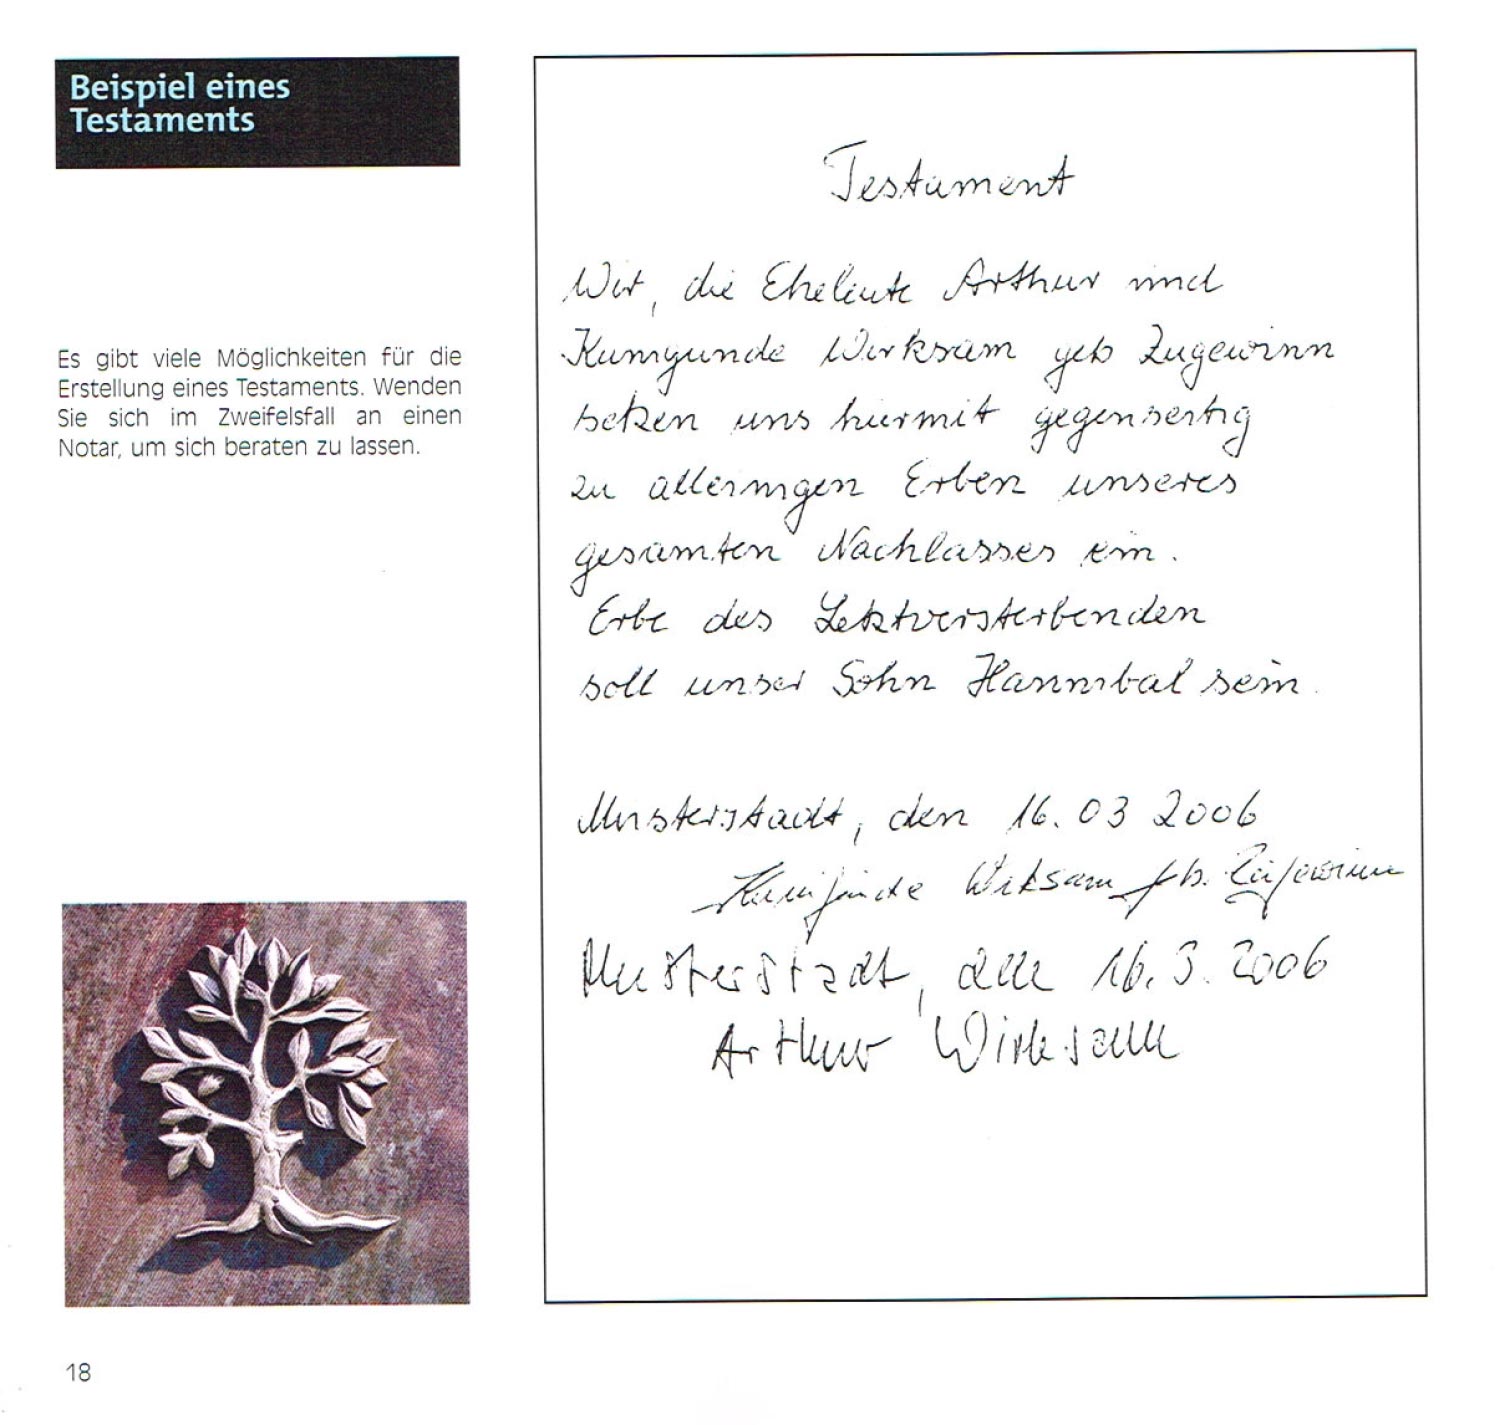 Beispiel eines
Testaments
Es gibt viele Möglichkeiten für die
Erstellung eines Testaments. Wenden
Sie sich im Zweifelsfall an einen
Notar, um sich beraten zu lassen.
Testament
Wir, die Eheleute Arthur und
Kunigunde Wirksam geb Zugewinn
setzen uns hiermit gegenseitig
zu alleinigen Erben unseres
gesamten Nachlasses ein.
Erbe des Letztversterbenden
soll unser Sohn Hannibal sein.
Musterstadt, den 16.03 2006
Kunigunde Wirksam geb. Zugewinn
Musterstadt, den 16.3.2006
Arthur Wirksam
18